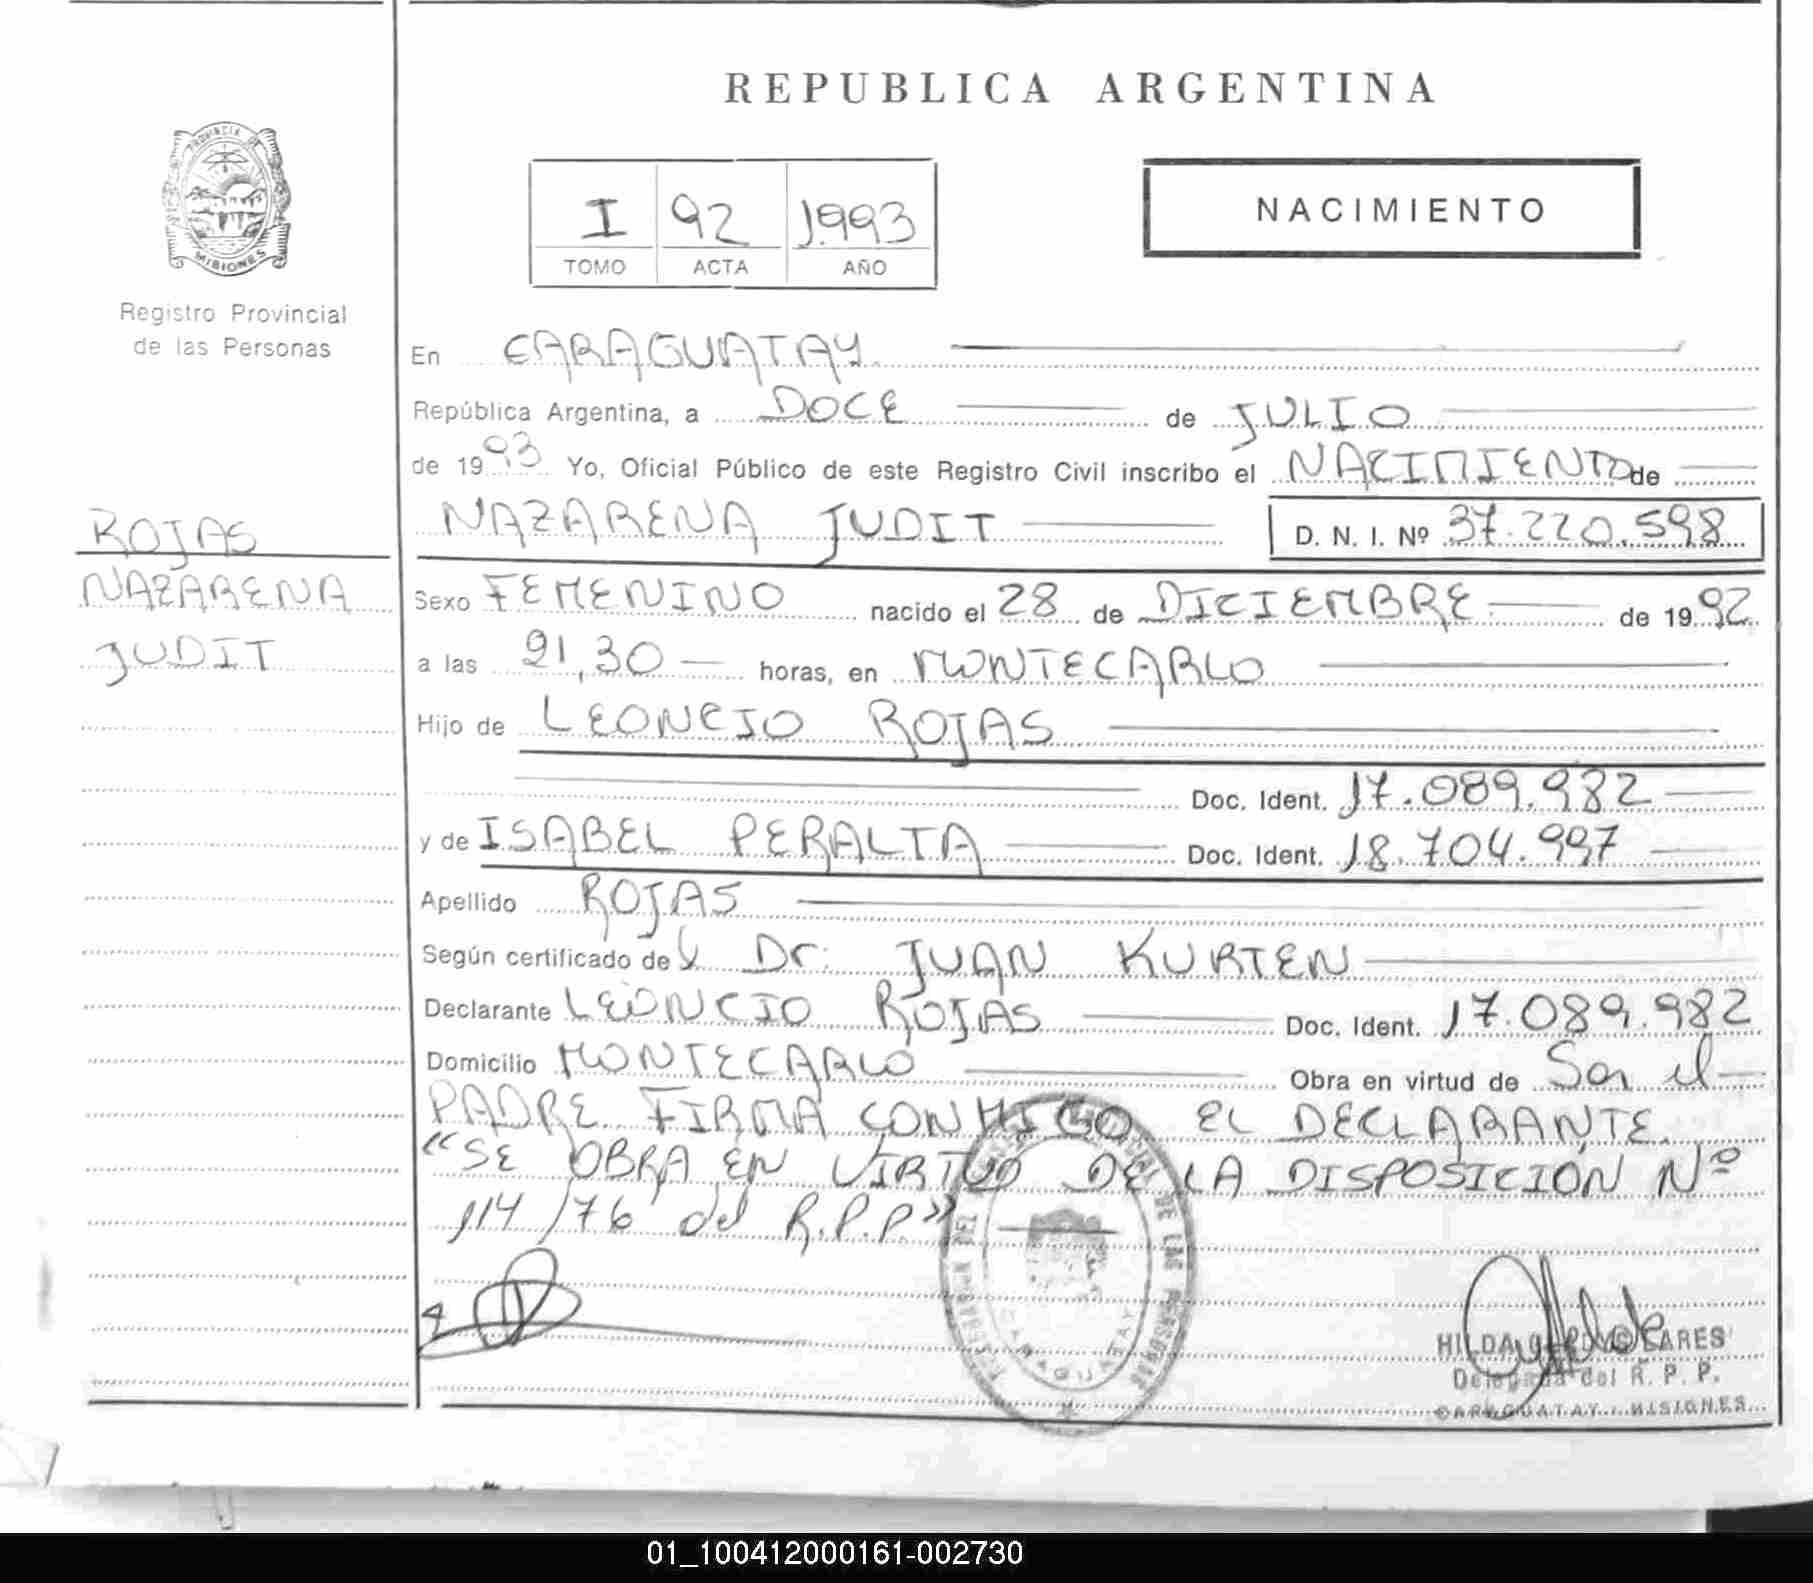 REPUBLICA ARGENTINA
PROVINCIA DE
MISIONES
Registro Provincial
de las Personas
I 92 1.993
TOMO ACTA AÑO
NACIMIENTO
En CARAGUATAY
República Argentina, a DOCE de JULIO
de 1993 Yo, Oficial Público de este Registro Civil inscribo el NACIMIENTO de
NAZARENA JUDIT D. N. I. Nº 37.220.598
ROJAS
NAZARENA
JUDIT
Sexo FEMENINO nacido el 28 de DICIEMBRE de 1992
a las 21,30 horas, en MONTECARLO
Hijo de LEONCIO ROJAS
Doc. Ident. 17.089.982
y de ISABEL PERALTA Doc. Ident. 18.704.997
Apellido ROJAS
Según certificado del Dr: JUAN KURTEN
Declarante LEONCIO ROJAS Doc. Ident. 17.089.982
Domicilio MONTECARLO Obra en virtud de Ser el
PADRE FIRMA CONMIGO EL DECLARANTE.
"SE OBRA EN VIRTUD DE LA DISPOSICION Nº
114/76 del R.P.P."
DE LAS PERSONAS
CARAGUATAY
HILDA ARES
Delegada del R. P. P.
CARAGUATAY - MISIONES
01_100412000161-002730